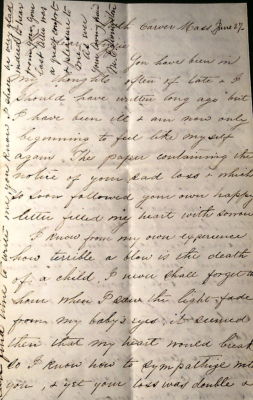 Carver Mass June 27.
You have been in
my thoughts often of late & I
should have written long ago but
I have been ill & am now only
beginning to feel like myself
again. The paper containing the
notice of your sad loss & which
so soon followed your own happy
letter filled my heart with sorrow
I know from my own experience
how terrible a blow is the death
of a child. I never shall forget the
hour when I saw the light fade
from my baby's eyes, it seemed
then that my heart would break
so I know how to sympathize with
you, & yet your loss was double
find time to write me, you know I shall be very glad
indeed to hear
from you. Your
last letter was
a great comfort
& pleasure to